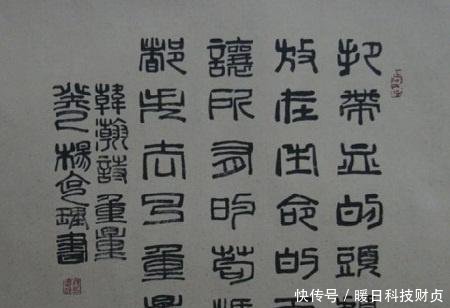 把帶血的頭
放在生命的
讓所有的苟
都失去了重量
韓瀚詩重量
楊 書
快传号 / 暖日科技财贞